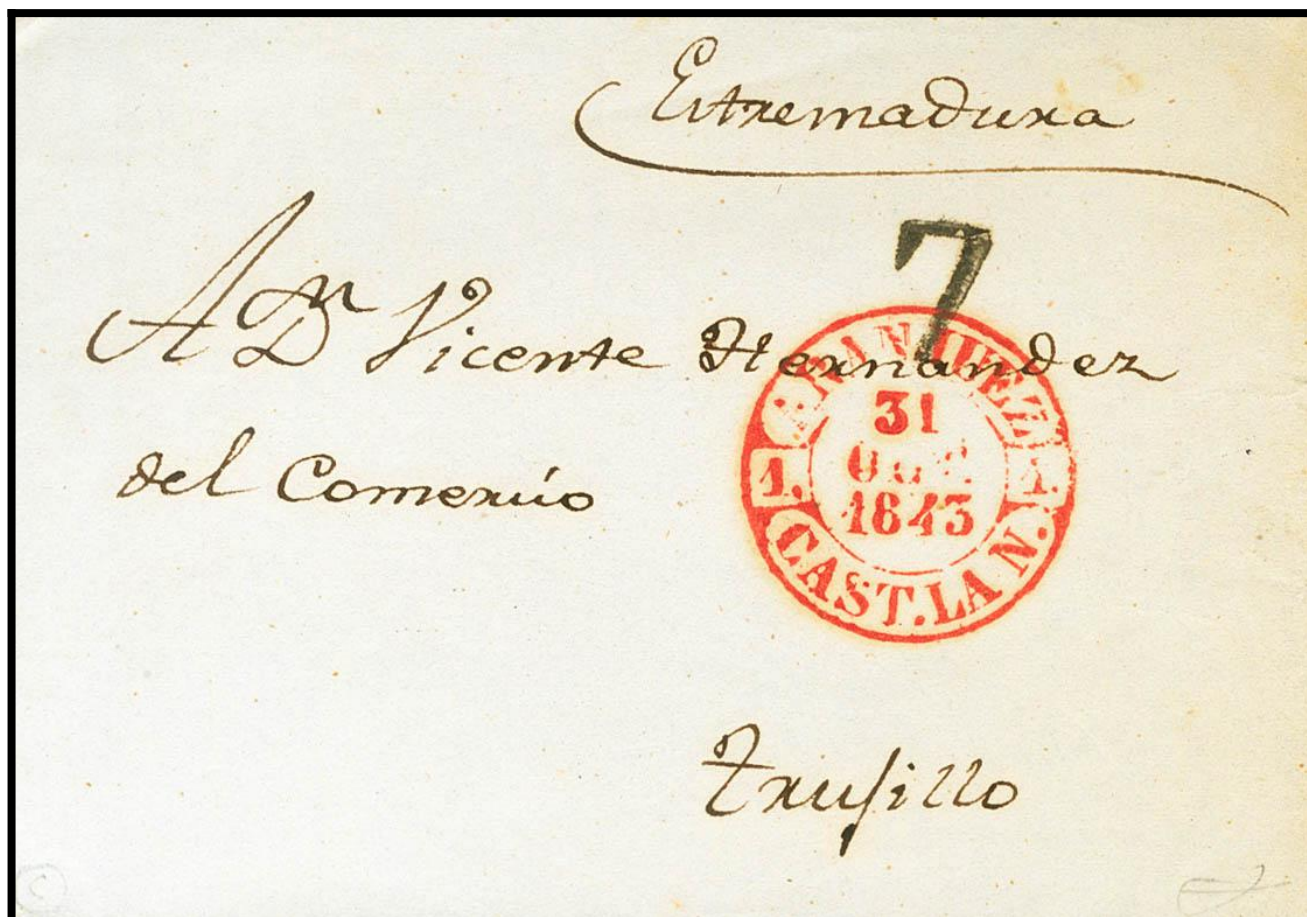 Extremadura
7
A Dn Vicente Hernandez
del Comercio
ARANJUEZ
31
OCT
1843
1. 1.
CAST. LA N.
Truxillo